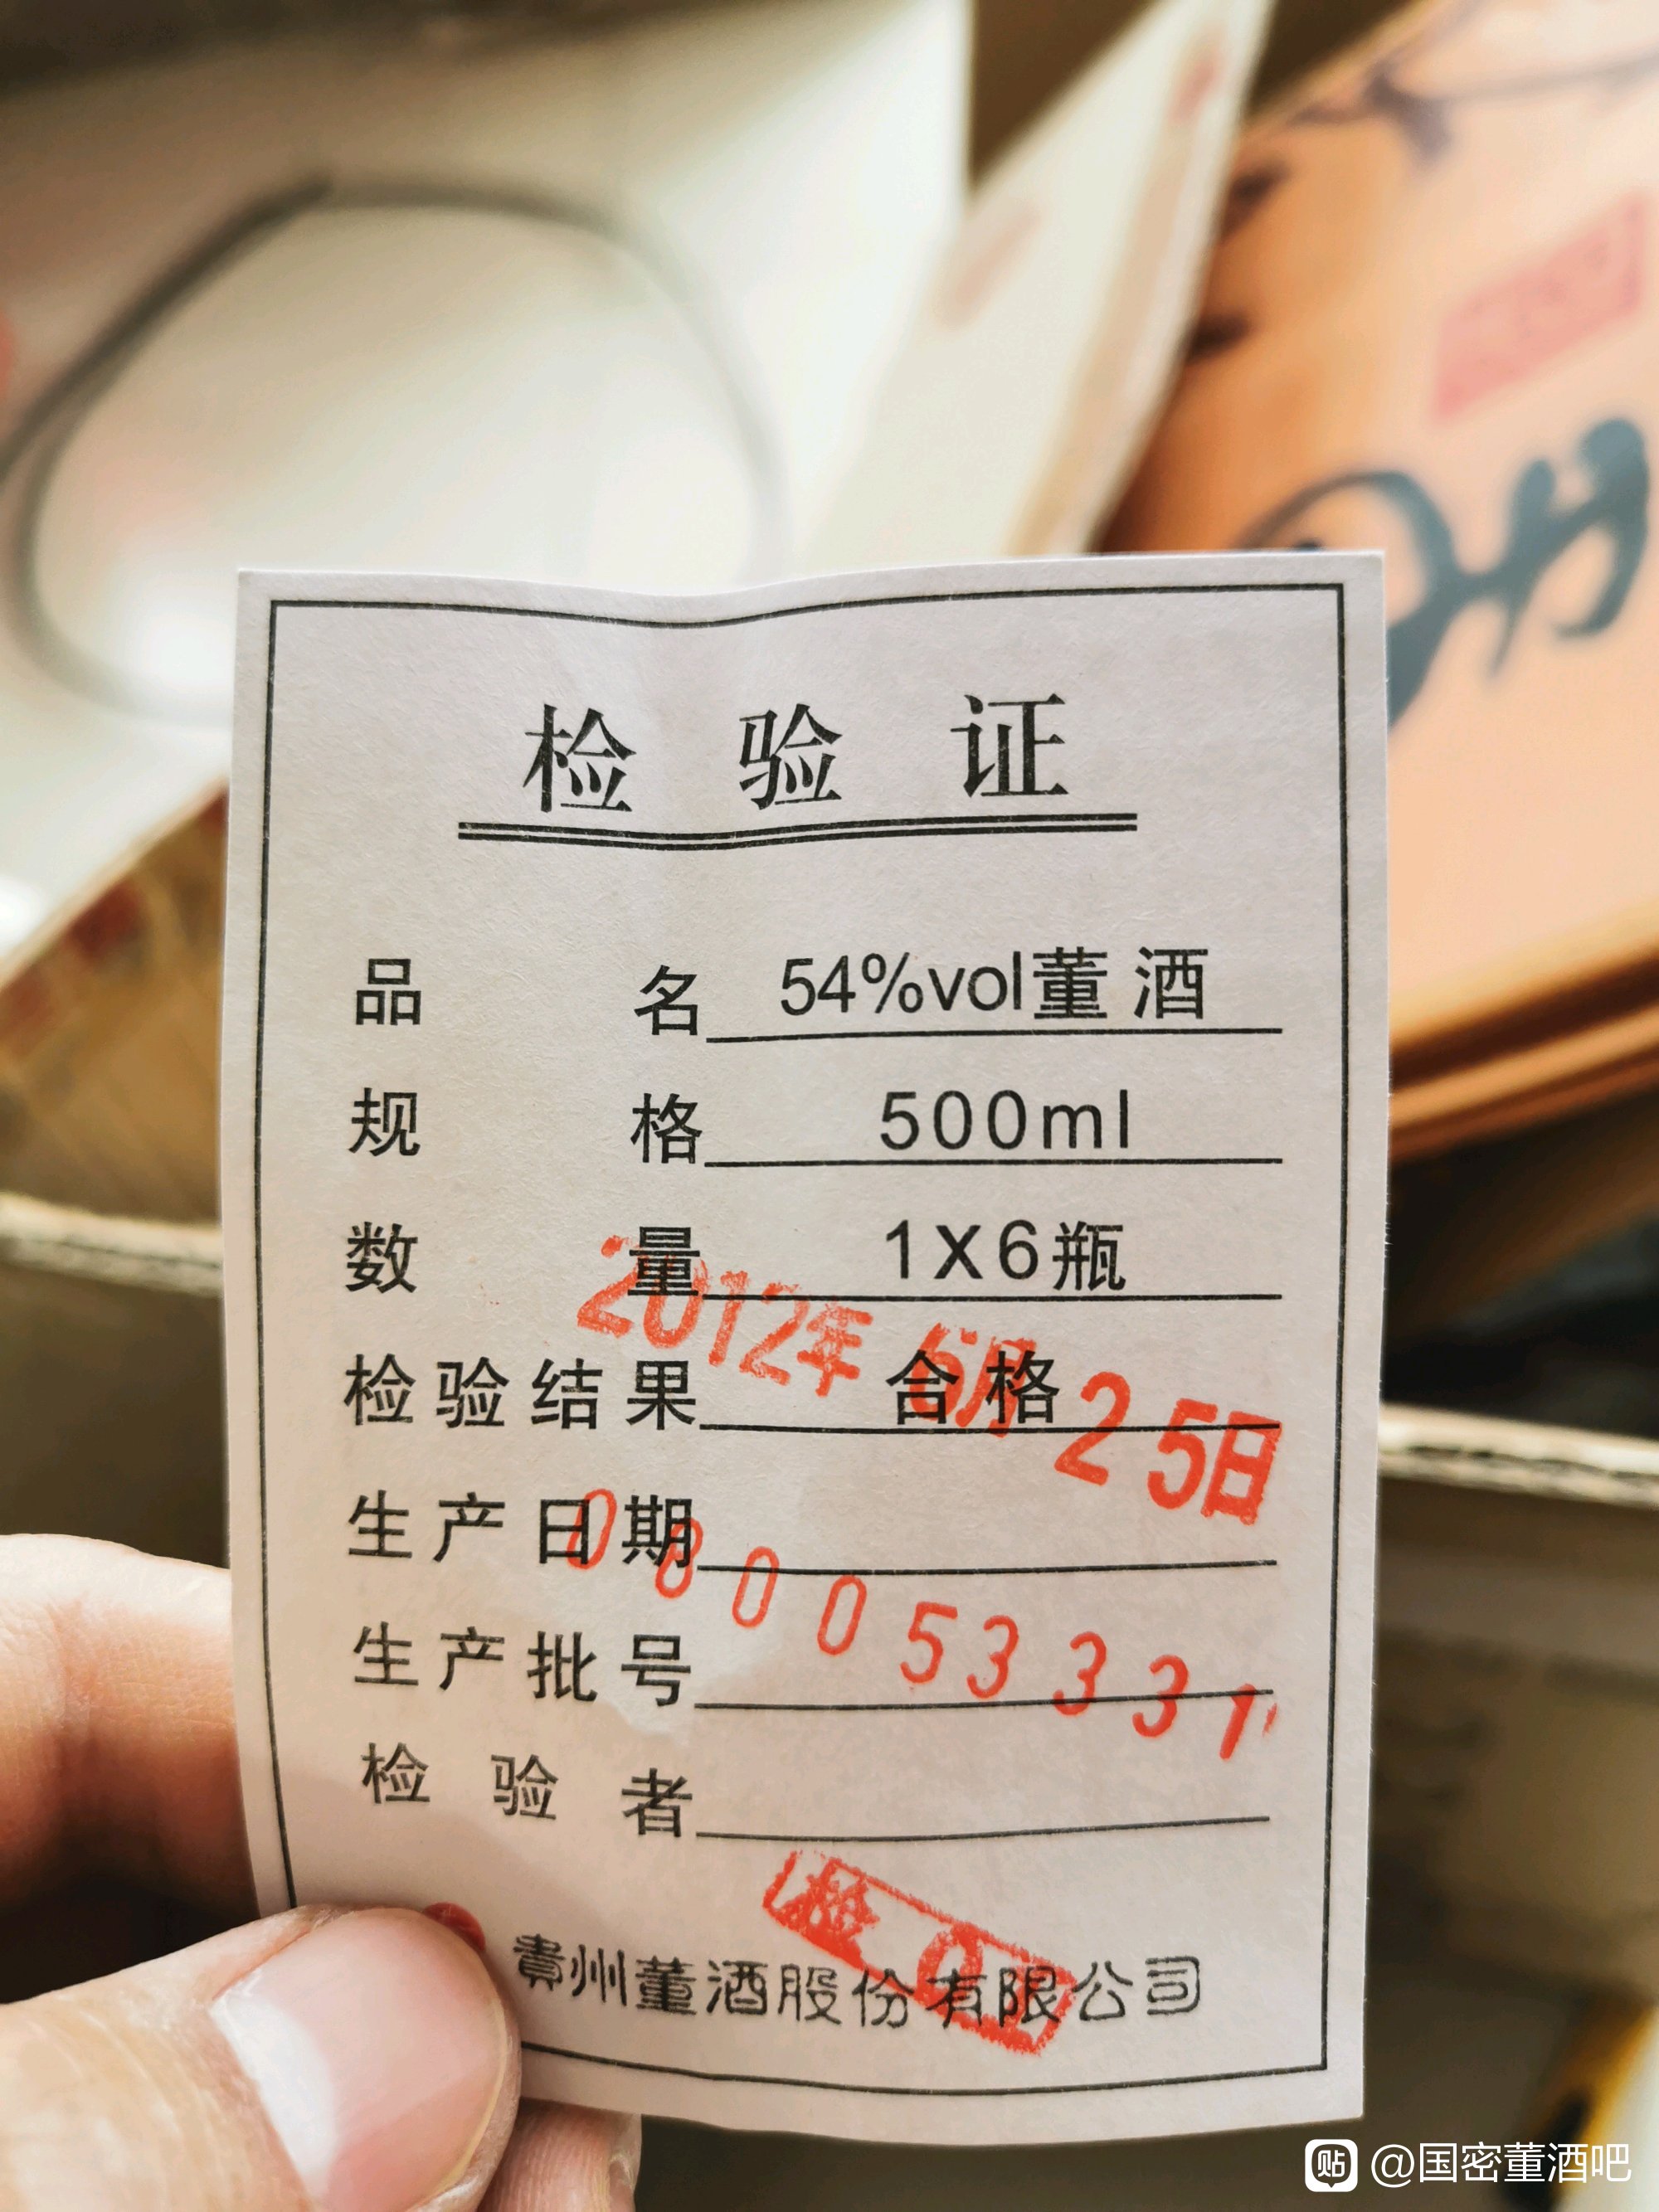 检验证
品名 54%vol董酒
规格 500ml
数量 1X6瓶
2012年6月25日
检验结果 合格
生产日期
080053331
生产批号
检验者
检
貴州董酒股份有限公司
贴 @国密董酒吧